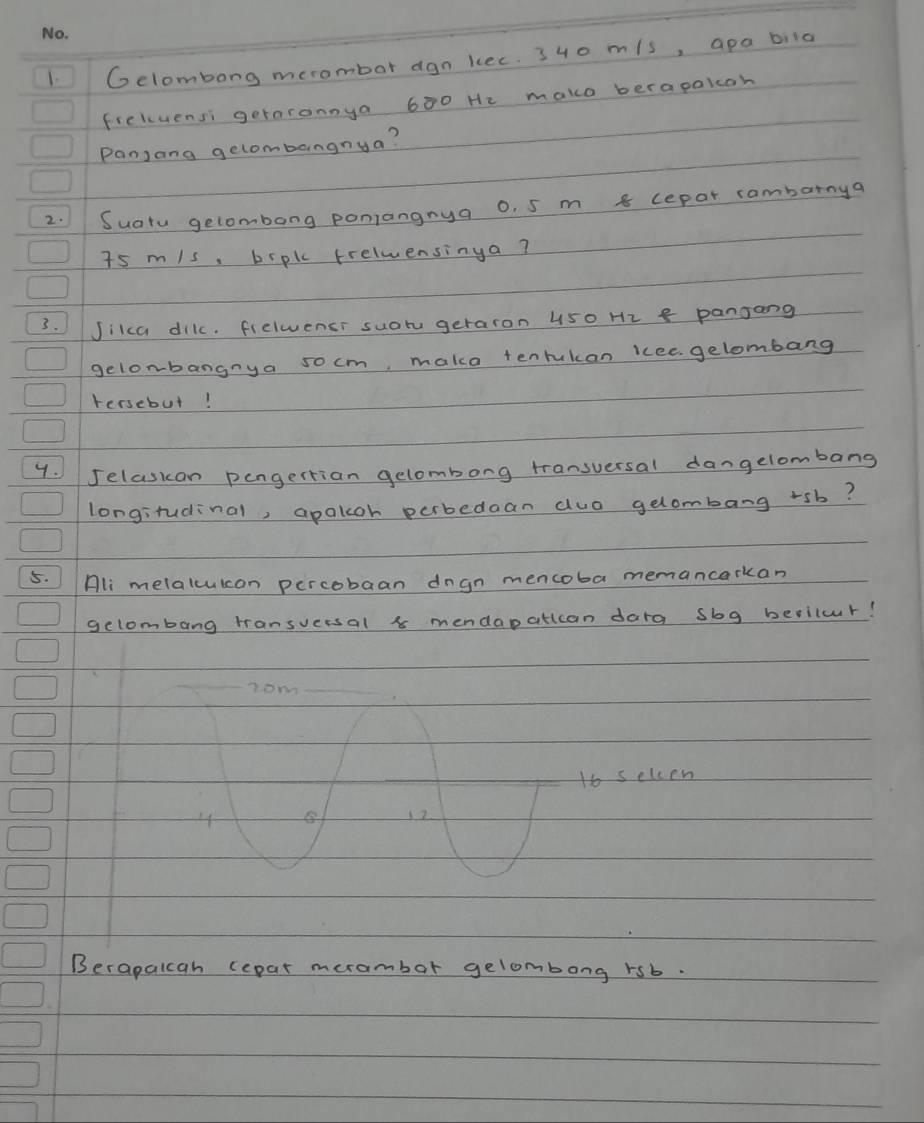 No.
1. Gelombang merambat dgn kec. 340 m/s, apa bila
frekuensi getarannya 680 Hz maka berapakah
panjang gelombangnya?
2. Suatu gelombang panjangnya 0.5 m & cepat rambatnya
75 m/s, brpk frekwensinya?
3. Jika dik. frekwensi suatu getaran 450 Hz & panjang
gelombangnya 50 cm, maka tentukan kec. gelombang
tersebut!
4. Jelaskan pengertian gelombang transversal dan gelombang
longitudinal, apakah perbedaan dua gelombang tsb?
5. Ali melakukan percobaan dngn mencoba memancarkan
gelombang transversal & mendapatkan data sbg berikut!
20m
16 seken
4 8 12
Berapakah cepat merambat gelombang tsb.